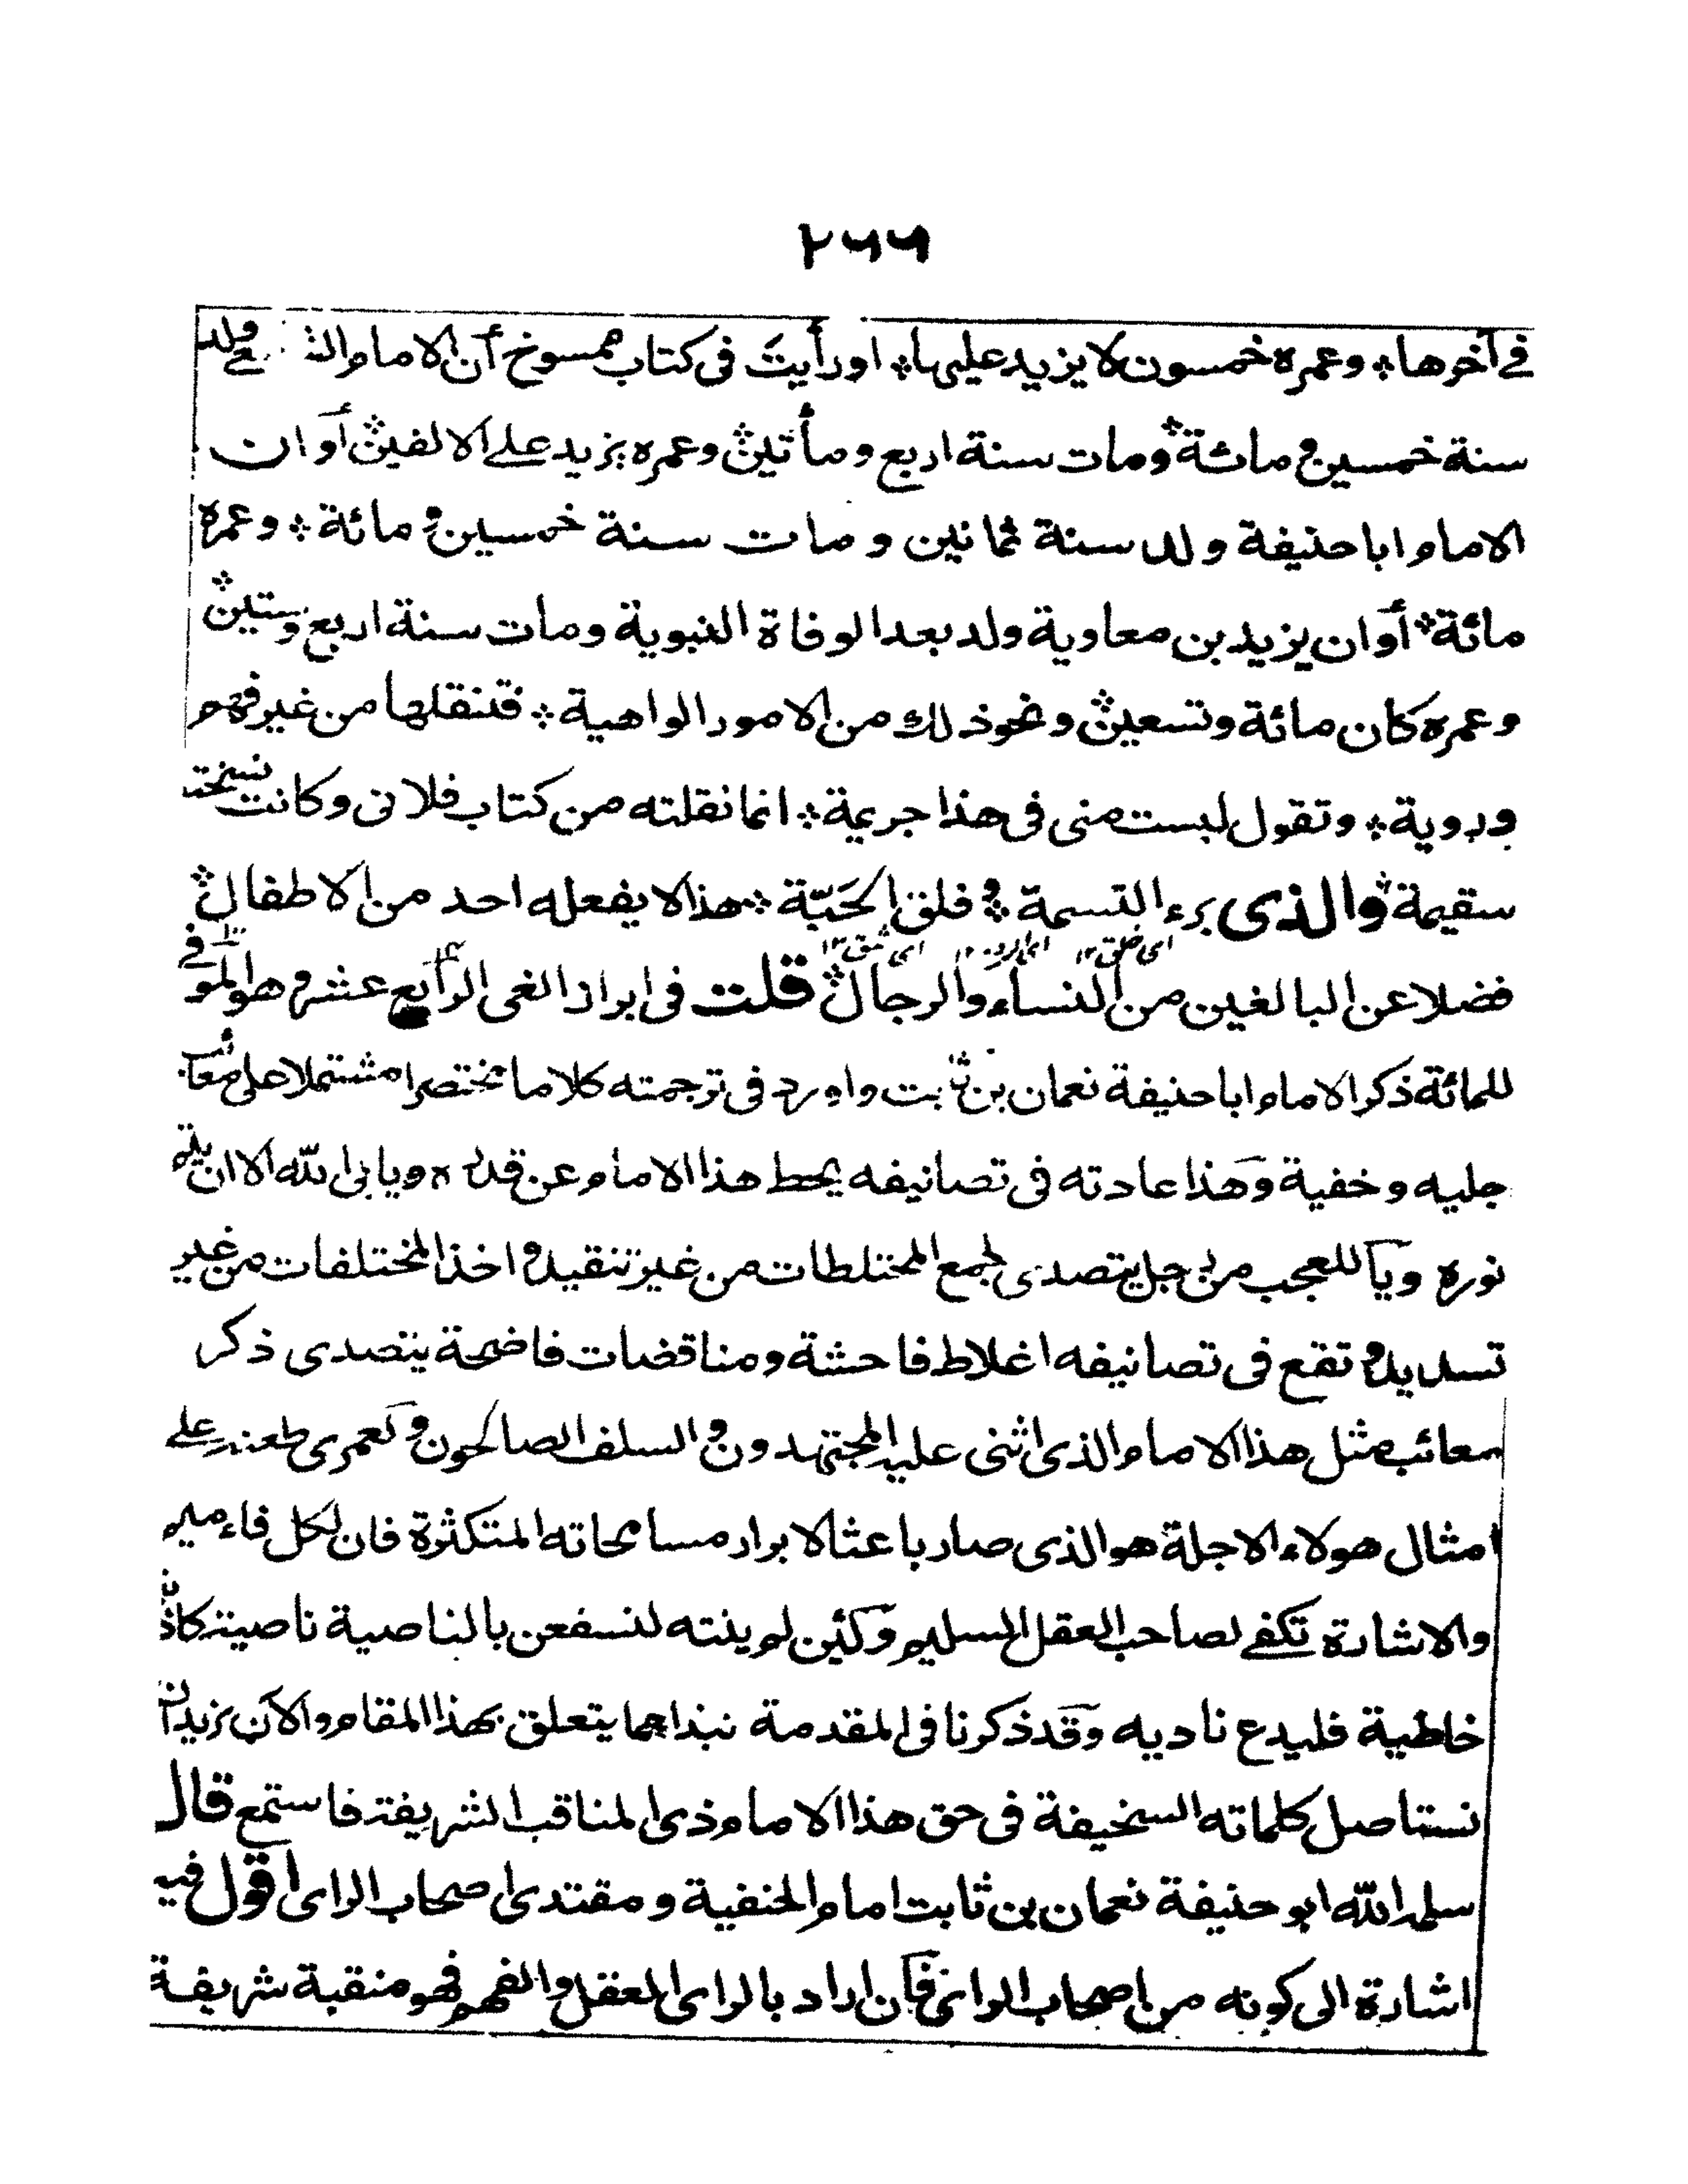 ٢٦٦
في آخرها ؞ وعمره خمسون لا يزيد عليها ؞ او رأيتَ فى كتاب ممسوخ أن الامام ولد
سنة خمسين و مائة ؞ ومات سنة اربع ومأتين ؞ وعمره يزيد على الالفين ؞ أو ان
الامام ابا حنيفة ولد سنة ثمانين و مات سنة خمسين و مائة ؞ وعمره
مائة ؞ أو ان يزيد بن معاوية ولد بعد الوفاة النبوية ومات سنة اربع وستين ؞
وعمره كان مائة وتسعين ؞ ونحو ذلك من الامور الواهية ؞ فتنقلها من غير فهم
وروية ؞ وتقول ليست منى فى هذا جريمة ؞ انما نقلته من كتاب فلانى وكانت نسخته
سقيمة ؞ والذى برء النسمة ؞ و فلق الحَبّة ؞ هذا لا يفعله احد من الاطفال ؞
اى خلق ١٢ اى شق ١٢
فضلا عن البالغين من النساء والرجال ؞ قلت فى ابراز الغى الرابع عشر وهو الموفى
للمائة ذكر الامام ابا حنيفة نعمان بن ثابت واورد فى ترجمته كلاما مختصرا مشتملا على معائب
جليه و خفية وهَذا عادته فى تصانيفه يحط هذا الامام عن قدره ويابى الله الا ان يتم
نوره ويآ للعجب من رجل يتصدى لجمع المختلطات من غير تنقيد و اخذ المختلفات من غير
تسديد و تقع فى تصانيفه اغلاط فاحشة ومناقضات فاضحة يتصدى ذكر
معائب مثل هذا الامام الذى اثنى عليه المجتهدون و السلف الصالحون و لعمرى طعنه على
امثال هولاء الاجلة هو الذى صار باعثا لابراز مسامحاته المتكثرة فان لكل فاء ميم
والاشارة تكفى لصاحب العقل السليم وَلئن لم ينته لنسفعن بالناصية ناصية كاذبة
خاطية فليدع ناديه وَقد ذكرنا فى المقدمة نبذا مما يتعلق بهذا المقام والآن نريد ان
نستاصل كلماته السخيفة فى حق هذا الامام ذى المناقب الشريفة فاستمع قال
سلمه الله ابو حنيفة نعمان بن ثابت امام الحنفية و مقتدى اصحاب الراى اقول فيه
اشارة الى كونه من اصحاب الراى فَآن اراد بالراى العقل والفهم فهو منقبة شريفة